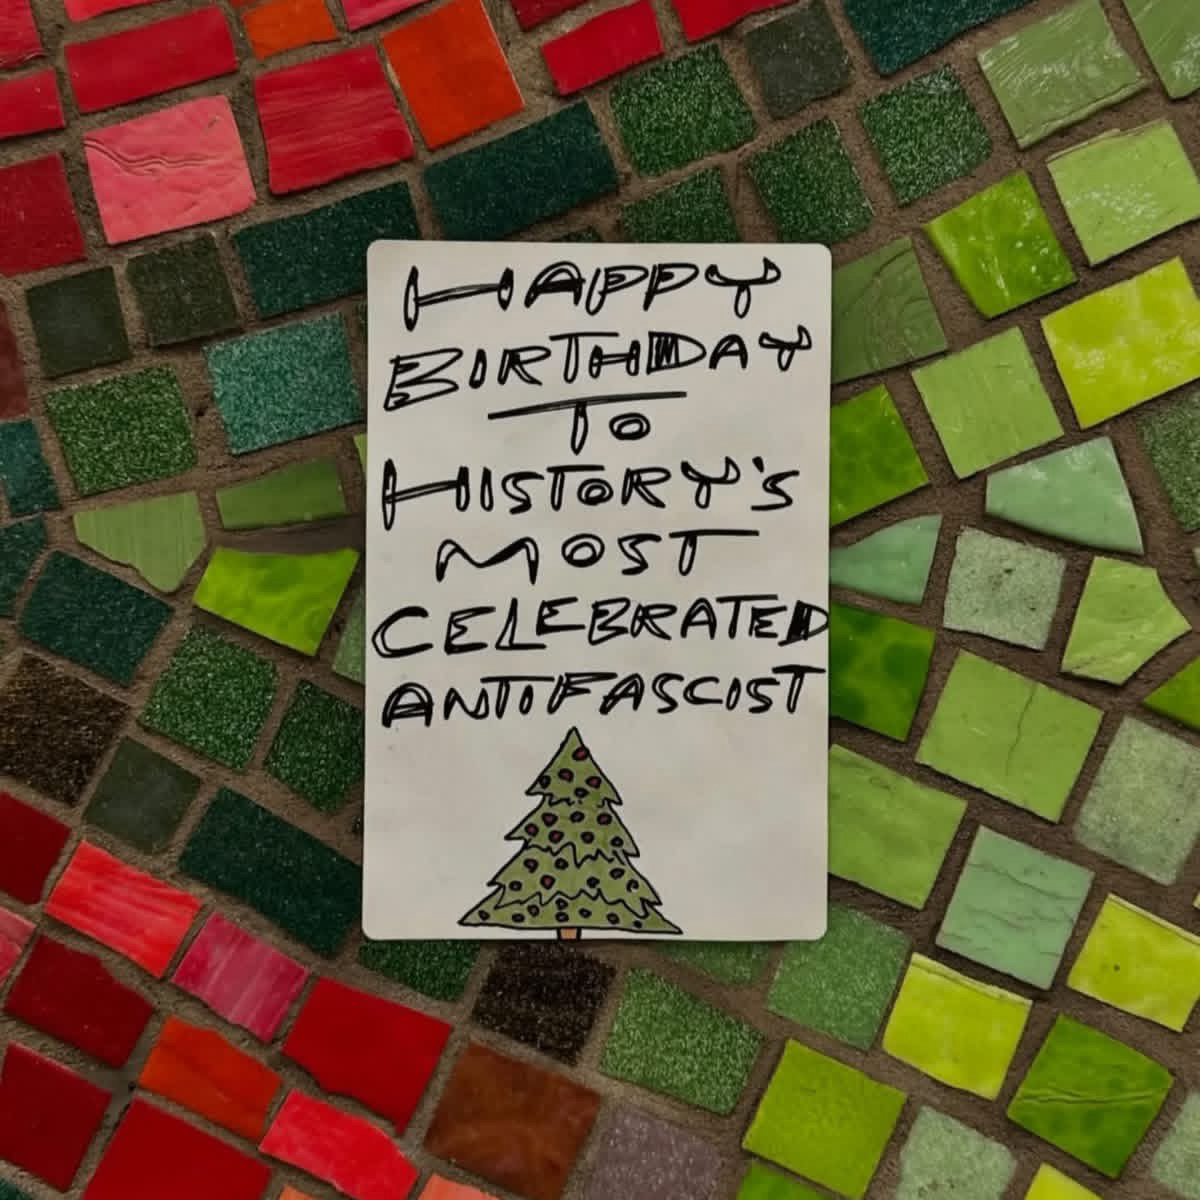 HAPPY
BIRTHDAY
TO
HISTORY'S
MOST
CELEBRATED
ANTIFASCIST